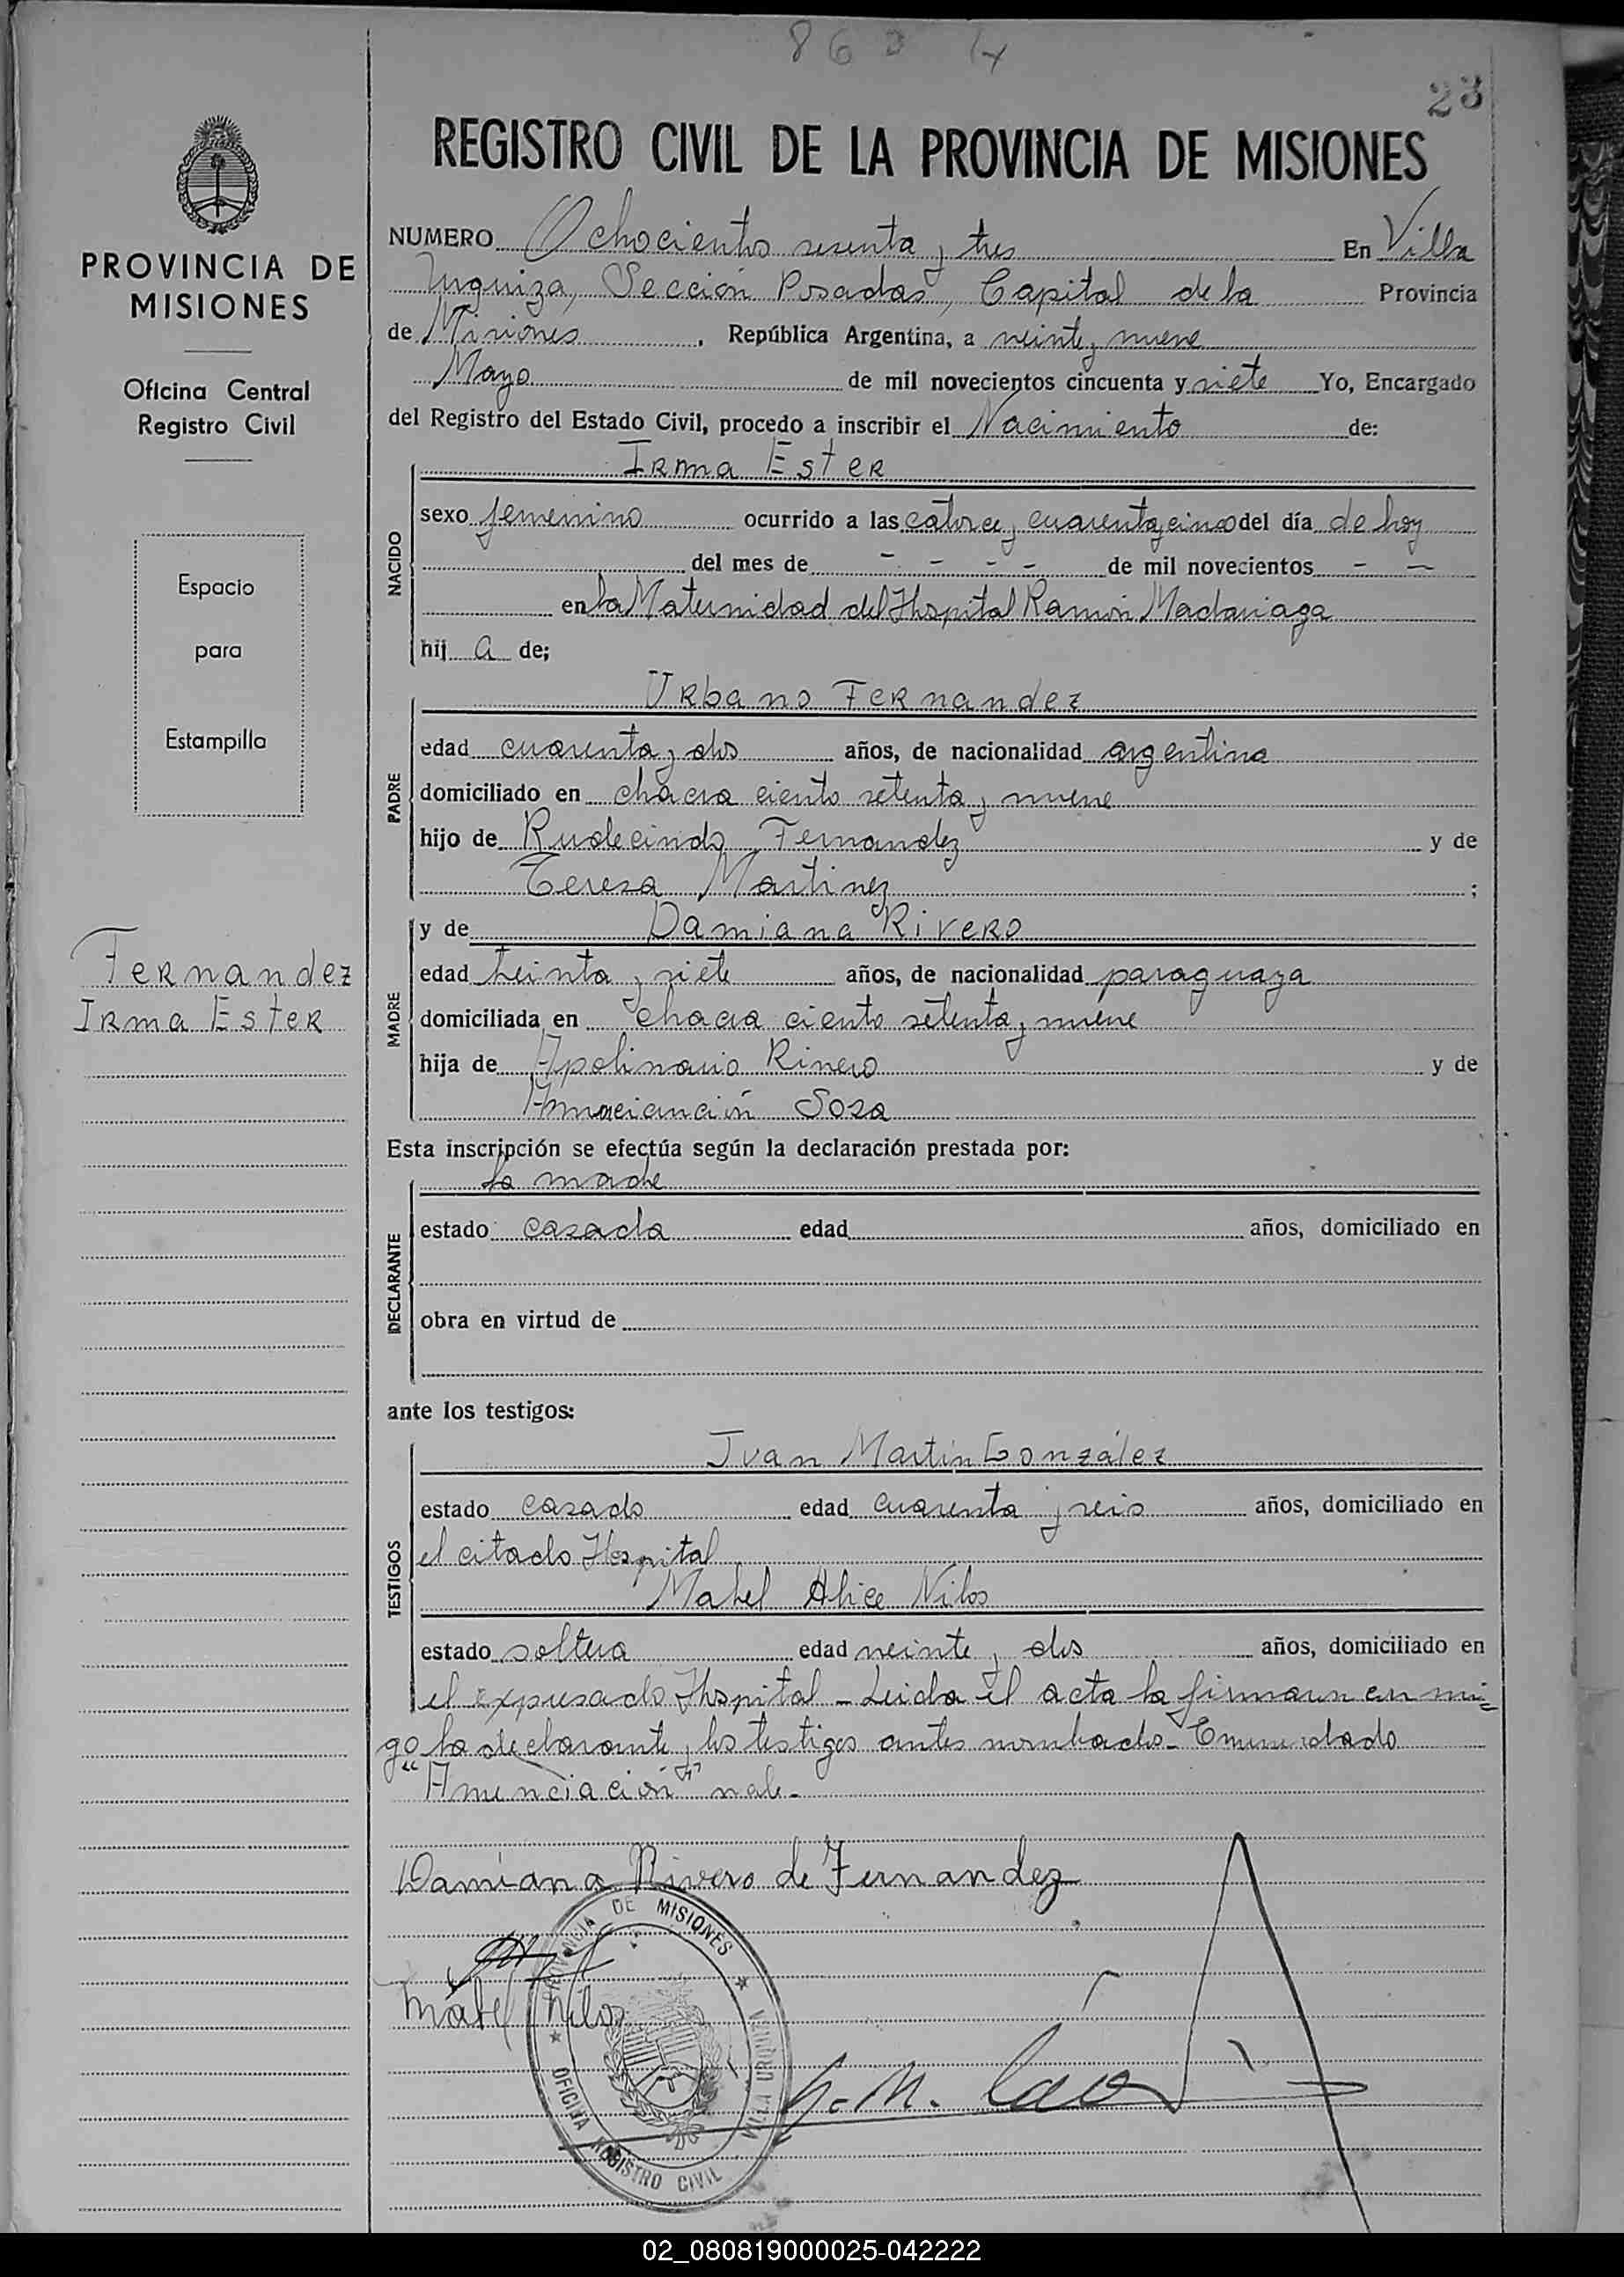 863
23
REGISTRO CIVIL DE LA PROVINCIA DE MISIONES
PROVINCIA DE
MISIONES
Oficina Central
Registro Civil
Espacio
para
Estampilla
Fernandez
Irma Ester
NUMERO Ochocientos sesenta y tres En Villa
Urquiza, Sección Posadas, Capital de la Provincia
de Misiones, República Argentina, a veinte y nueve
Mayo de mil novecientos cincuenta y siete Yo, Encargado
del Registro del Estado Civil, procedo a inscribir el Nacimiento de:
NACIDO
Irma Ester
sexo femenino ocurrido a las catorce y cuarenta y cinco del día de hoy
del mes de - - - - de mil novecientos - -
en la Maternidad del Hospital Ramón Madariaga
hij a de;
PADRE
Urbano Fernandez
edad cuarenta y dos años, de nacionalidad argentina
domiciliado en chacra ciento setenta y nueve
hijo de Rudecindo Fernandez y de
Teresa Martinez ;
MADRE
y de Damiana Rivero
edad treinta y siete años, de nacionalidad paraguaya
domiciliada en chacra ciento setenta y nueve
hija de Apolinario Rivero y de
Sosa
Esta inscripción se efectúa según la declaración prestada por:
DECLARANTE
la madre
estado casada edad años, domiciliado en
obra en virtud de
ante los testigos:
TESTIGOS
Juan Martín González
estado casado edad cuarenta y seis años, domiciliado en
el citado Hospital
Mabel Alice Nilos
estado soltera edad veinte y dos años, domiciliado en
el expresado Hospital - Leida el acta la firmaron conmi=
go la declarante y los testigos antes nombrados - Enmendado
"Anunciación" vale -
Damiana Rivero de Fernandez
Mabel Nilos
PROVINCIA DE MISIONES
OFICINA REGISTRO CIVIL
VILLA URQUIZA
02_080819000025-042222